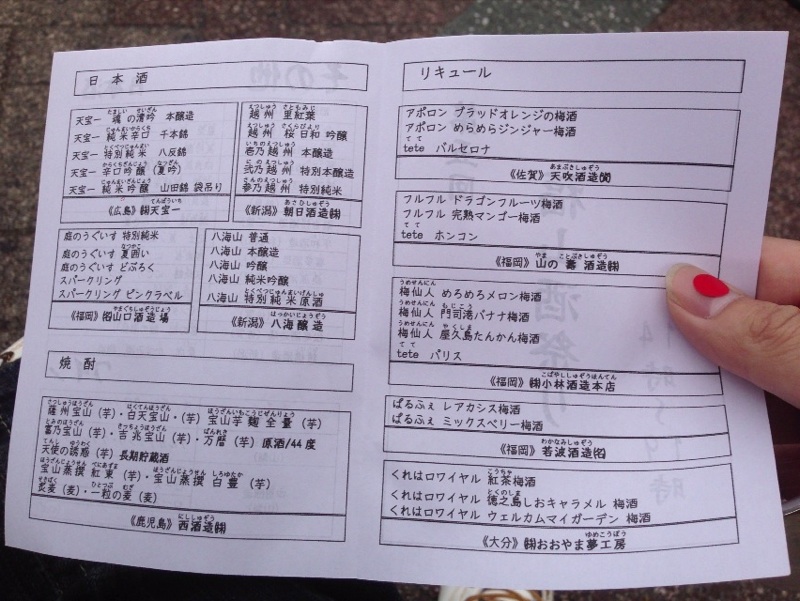 日本酒
天宝一 魂の清吟 本醸造
天宝一 純米辛口 千本錦
天宝一 特別純米 八反錦
天宝一 辛口吟醸(夏吟)
天宝一 純米吟醸 山田錦 袋吊り
《広島》㈱天宝一
越州 里紅葉
越州 桜日和 吟醸
壱乃越州 本醸造
弐乃越州 特別本醸造
参乃越州 特別純米
《新潟》朝日酒造㈱
庭のうぐいす 特別純米
庭のうぐいす 夏囲い
庭のうぐいす どぶろく
スパークリング
スパークリング ピンクラベル
《福岡》㈴山口酒造場
八海山 普通
八海山 本醸造
八海山 吟醸
八海山 純米吟醸
八海山 特別純米原酒
《新潟》八海醸造
焼酎
薩州宝山(芋)・白天宝山・(芋)宝山芋麹全量(芋)
富乃宝山(芋)・吉兆宝山(芋)・万暦(芋)原酒/44度
天使の誘惑(芋)長期貯蔵酒
宝山蒸撰 紅東(芋)・宝山蒸撰 白豊(芋)
長麦(麦)・一粒の麦(麦)
《鹿児島》西酒造㈱
リキュール
アポロン ブラッドオレンジの梅酒
アポロン めらめらジンジャー梅酒
tete バルセロナ
《佐賀》天吹酒造㈾
フルフル ドラゴンフルーツ梅酒
フルフル 完熟マンゴー梅酒
tete ホンコン
《福岡》山の壽 酒造㈱
梅仙人 めろめろメロン梅酒
梅仙人 門司港バナナ梅酒
梅仙人 屋久島たんかん梅酒
tete パリス
《福岡》㈱小林酒造本店
ぱるふぇ レアカシス梅酒
ぱるふぇ ミックスベリー梅酒
《福岡》若波酒造㈴
くれはロワイヤル 紅茶梅酒
くれはロワイヤル 徳之島しおキャラメル 梅酒
くれはロワイヤル ウェルカムマイガーデン 梅酒
《大分》㈱おおやま夢工房